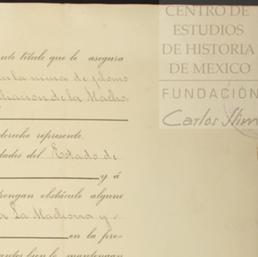 CENTRO DE
ESTUDIOS
DE HISTORIA
DE MEXICO
FUNDACIÓN
Carlos Slim
ente título que le asegura
mina de plomo
de la Madro
derecho represente.
dades del Estado de
y á
pongan obstáculo alguno
La Madrona y
en la pro-
antes bien le mantengan